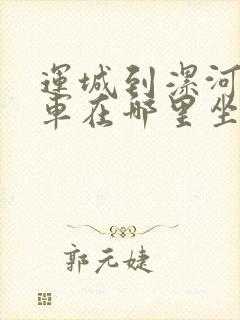 運城到漯河
車在哪里坐
郭元婕